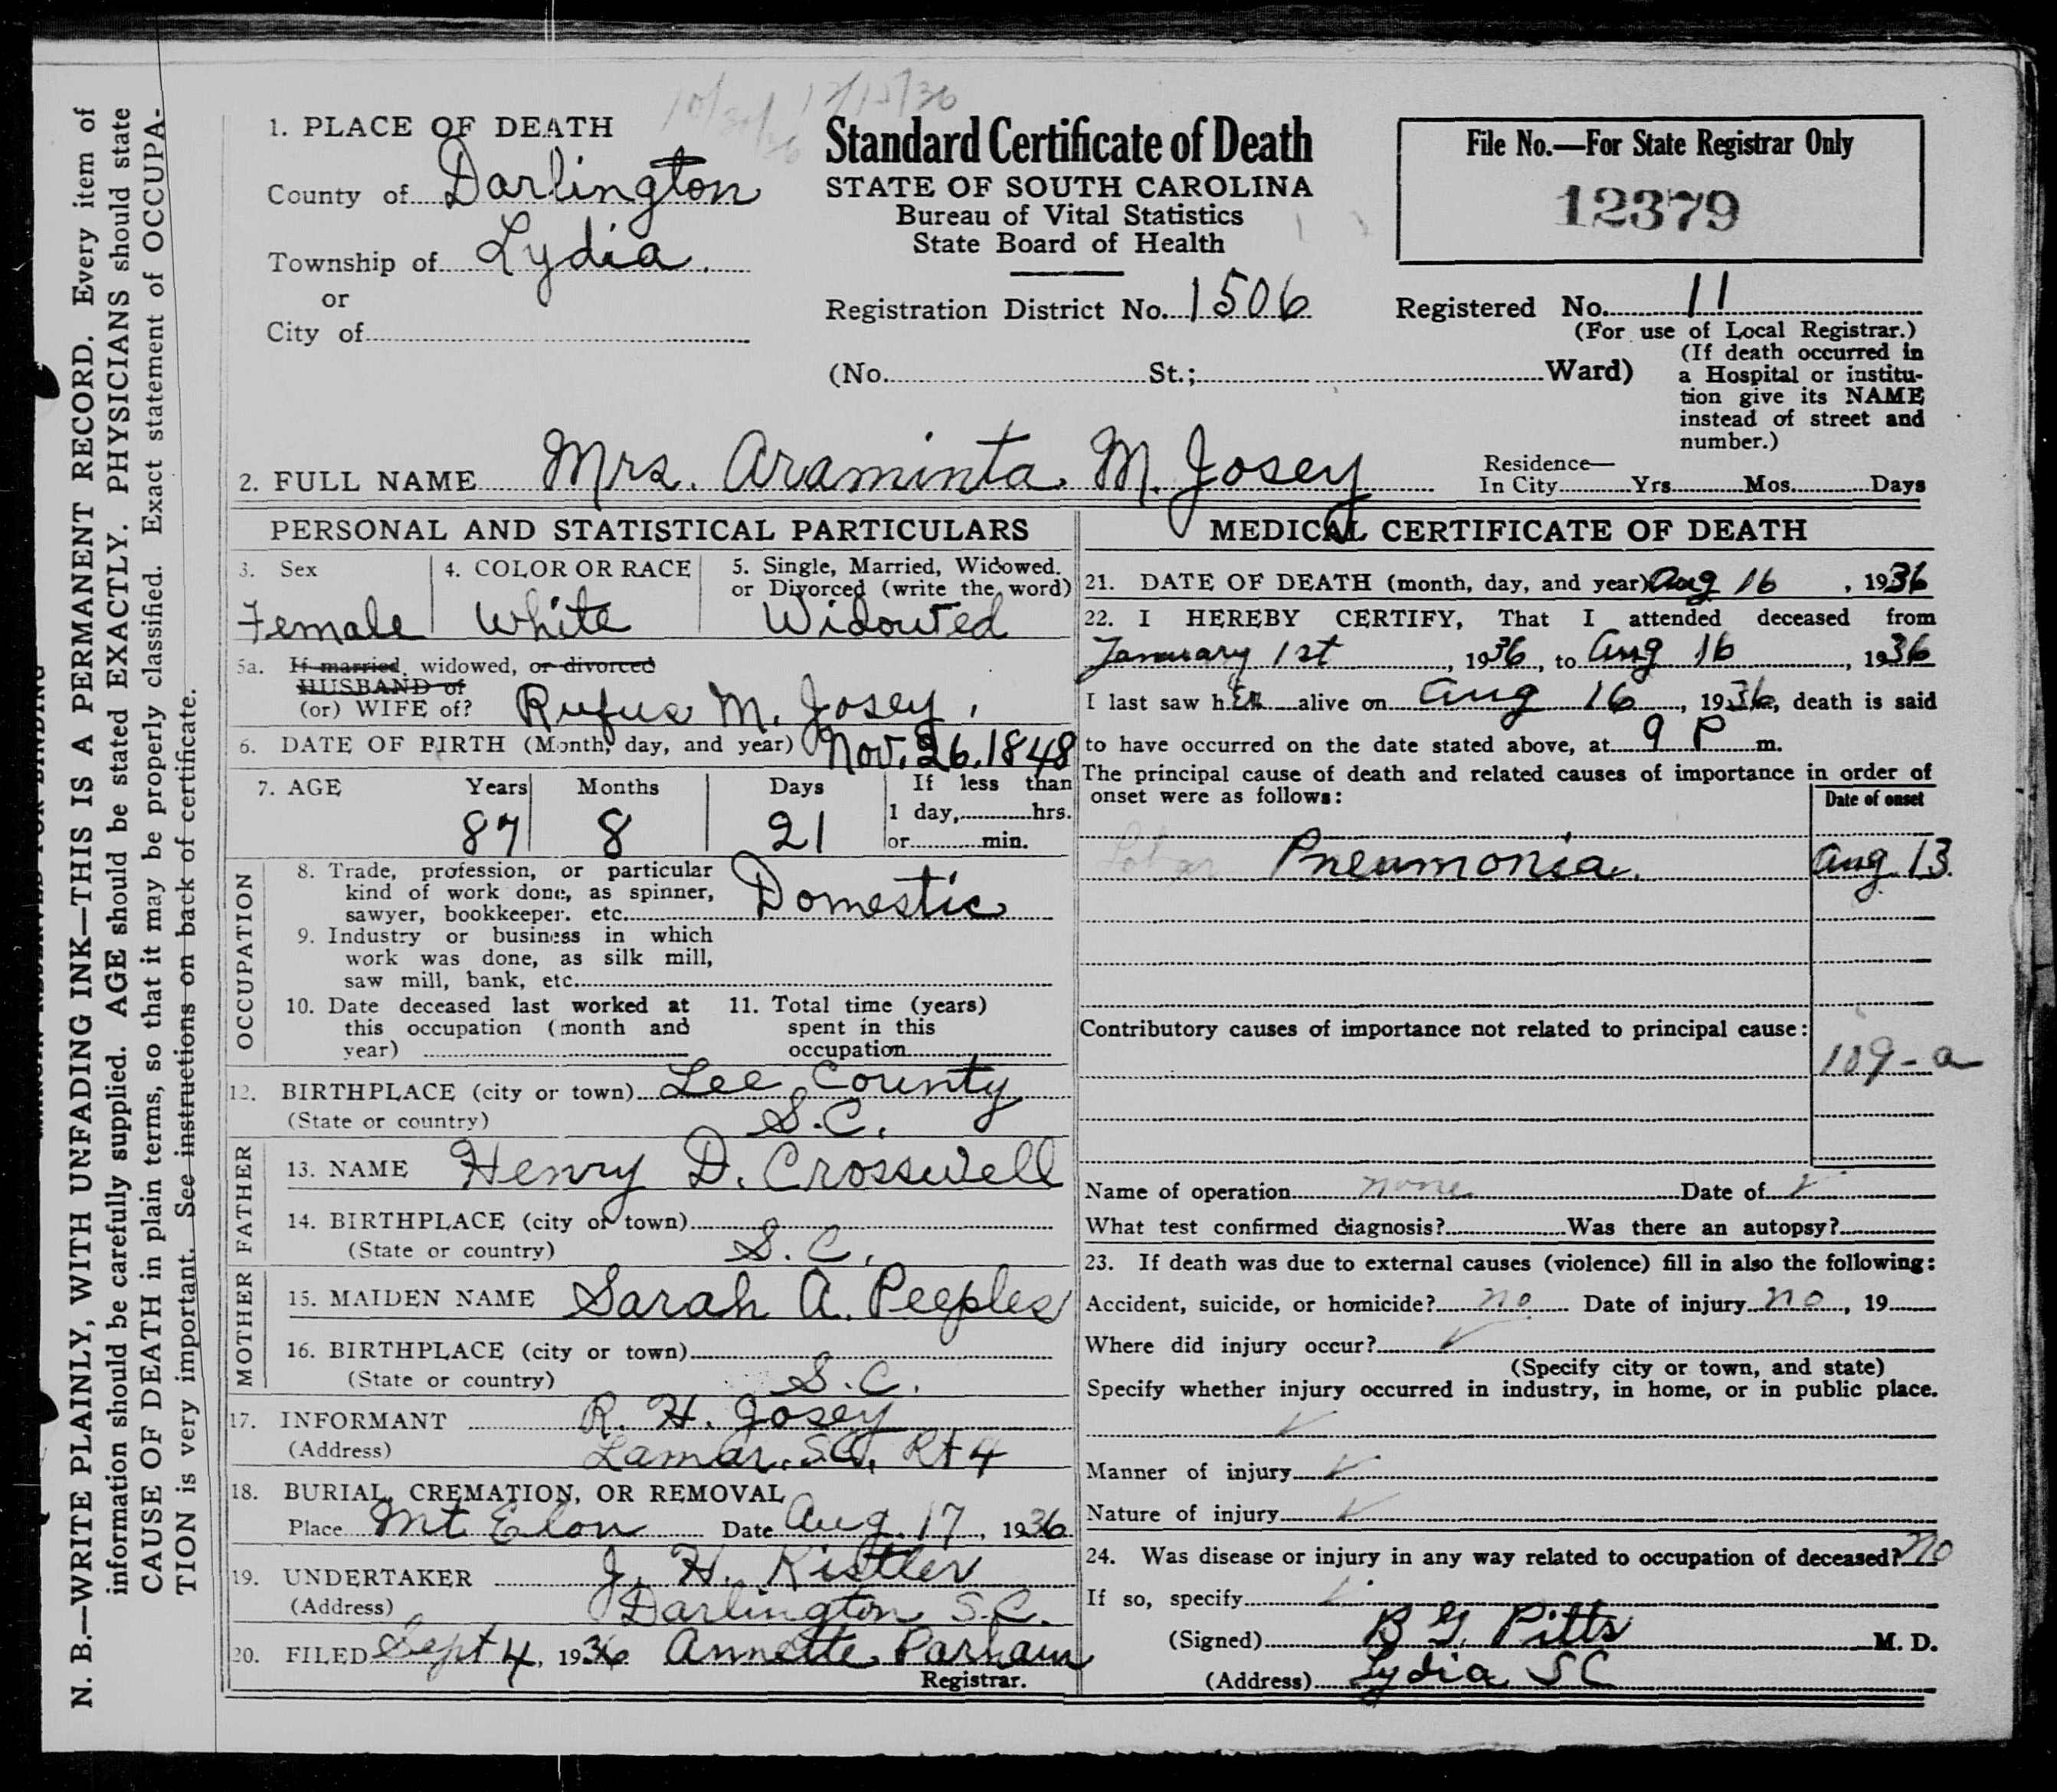 N. B.—WRITE PLAINLY, WITH UNFADING INK—THIS IS A PERMANENT RECORD. Every item of
information should be carefully supplied. AGE should be stated EXACTLY. PHYSICIANS should state
CAUSE OF DEATH in plain terms, so that it may be properly classified. Exact statement of OCCUPA-
TION is very important. See instructions on back of certificate.
1. PLACE OF DEATH
County of Darlington
Township of Lydia
or
City of
12/15/36
Standard Certificate of Death
STATE OF SOUTH CAROLINA
Bureau of Vital Statistics
State Board of Health
Registration District No. 1506
(No. St.; Ward)
File No.—For State Registrar Only
12379
Registered No. 11
(For use of Local Registrar.)
(If death occurred in
a Hospital or institu-
tion give its NAME
instead of street and
number.)
2. FULL NAME Mrs. Araminta M. Josey
Residence—
In City Yrs. Mos. Days
PERSONAL AND STATISTICAL PARTICULARS
3. Sex
Female
4. COLOR OR RACE
White
5. Single, Married, Widowed.
or Divorced (write the word)
Widowed
5a. If married, widowed, or divorced
HUSBAND of
(or) WIFE of? Rufus M. Josey,
6. DATE OF BIRTH (Month, day, and year) Nov. 26. 1848
7. AGE Years Months Days If less than
1 day, hrs.
87 8 21 or min.
OCCUPATION
8. Trade, profession, or particular
kind of work done, as spinner,
sawyer, bookkeeper. etc. Domestic
9. Industry or business in which
work was done, as silk mill,
saw mill, bank, etc.
10. Date deceased last worked at
this occupation (month and
year)
11. Total time (years)
spent in this
occupation
12. BIRTHPLACE (city or town) Lee County
(State or country) S.C.
FATHER
13. NAME Henry D. Crosswell
14. BIRTHPLACE (city or town)
(State or country) S. C.
MOTHER
15. MAIDEN NAME Sarah A. Peeples
16. BIRTHPLACE (city or town)
(State or country) S.C.
17. INFORMANT R. H. Josey
(Address) Lamar, S.C. Rt 4
18. BURIAL, CREMATION, OR REMOVAL
Place Mt. Elon Date Aug. 17, 1936
19. UNDERTAKER J. H. Kistler
(Address) Darlington S.C.
20. FILED Sept 4, 1936 Annette Parham
Registrar.
MEDICAL CERTIFICATE OF DEATH
21. DATE OF DEATH (month, day, and year) Aug 16, 1936
22. I HEREBY CERTIFY, That I attended deceased from
January 1st, 1936, to Aug 16, 1936
I last saw her alive on Aug 16, 1936, death is said
to have occurred on the date stated above, at 9 P m.
The principal cause of death and related causes of importance in order of
onset were as follows:
Date of onset
Lobar Pneumonia. Aug. 13.
Contributory causes of importance not related to principal cause:
109-a
Name of operation none Date of ✓
What test confirmed diagnosis? Was there an autopsy?
23. If death was due to external causes (violence) fill in also the following:
Accident, suicide, or homicide? no Date of injury no, 19
Where did injury occur? ✓
(Specify city or town, and state)
Specify whether injury occurred in industry, in home, or in public place.
✓
Manner of injury ✓
Nature of injury ✓
24. Was disease or injury in any way related to occupation of deceased? no
If so, specify ✓
(Signed) B G. Pitts M. D.
(Address) Lydia SC